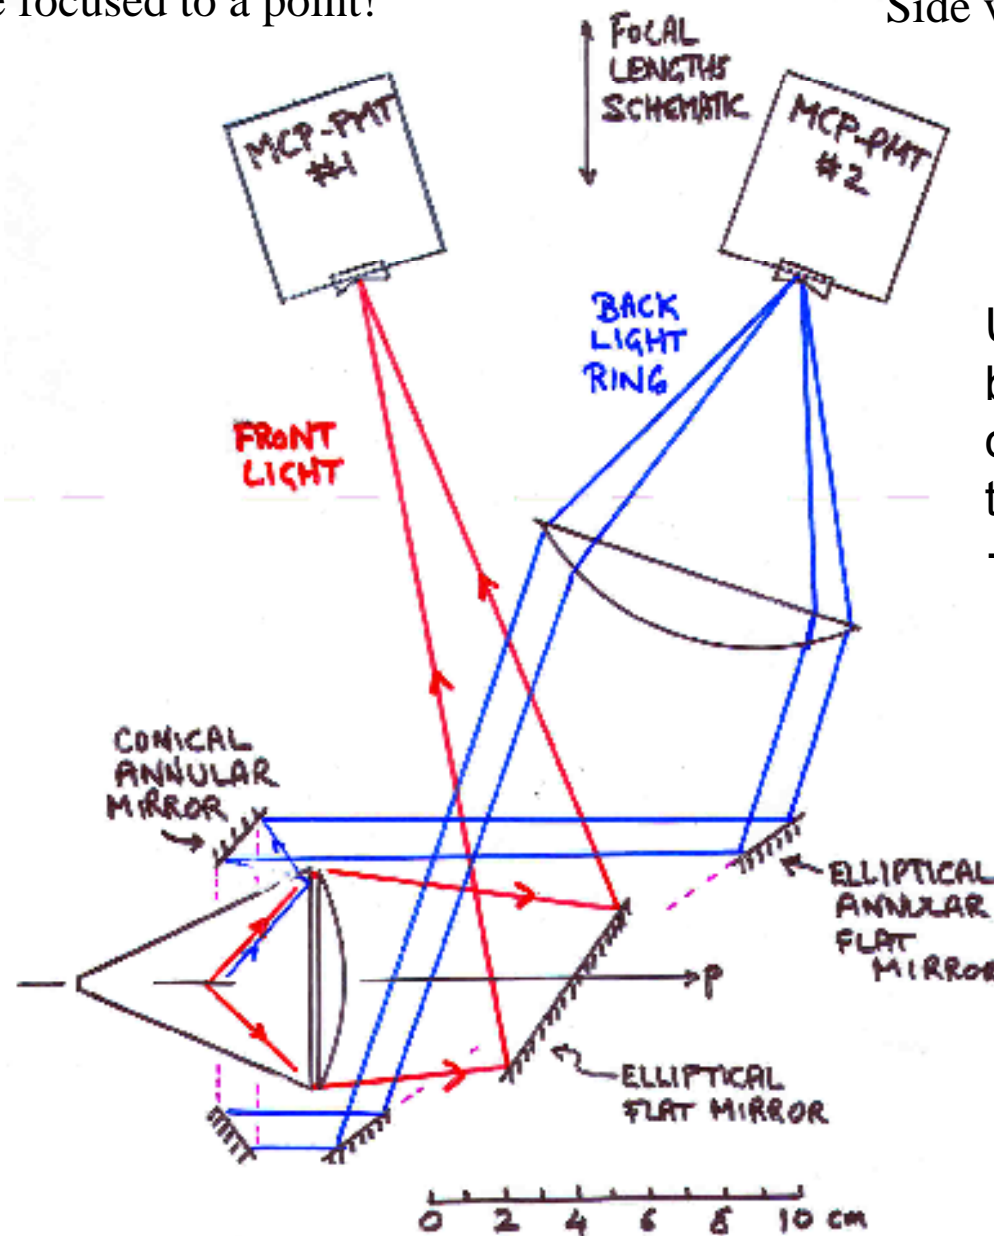 e focused to a point!
Side v
FOCAL
LENGTHS
SCHEMATIC
MCP-PMT
#1
MCP-PMT
#2
BACK
LIGHT
RING
U
b
c
t
-
FRONT
LIGHT
CONICAL
ANNULAR
MIRROR
ELLIPTICAL
ANNULAR
FLAT
MIRROR
P
ELLIPTICAL
FLAT MIRROR
0 2 4 6 8 10 cm